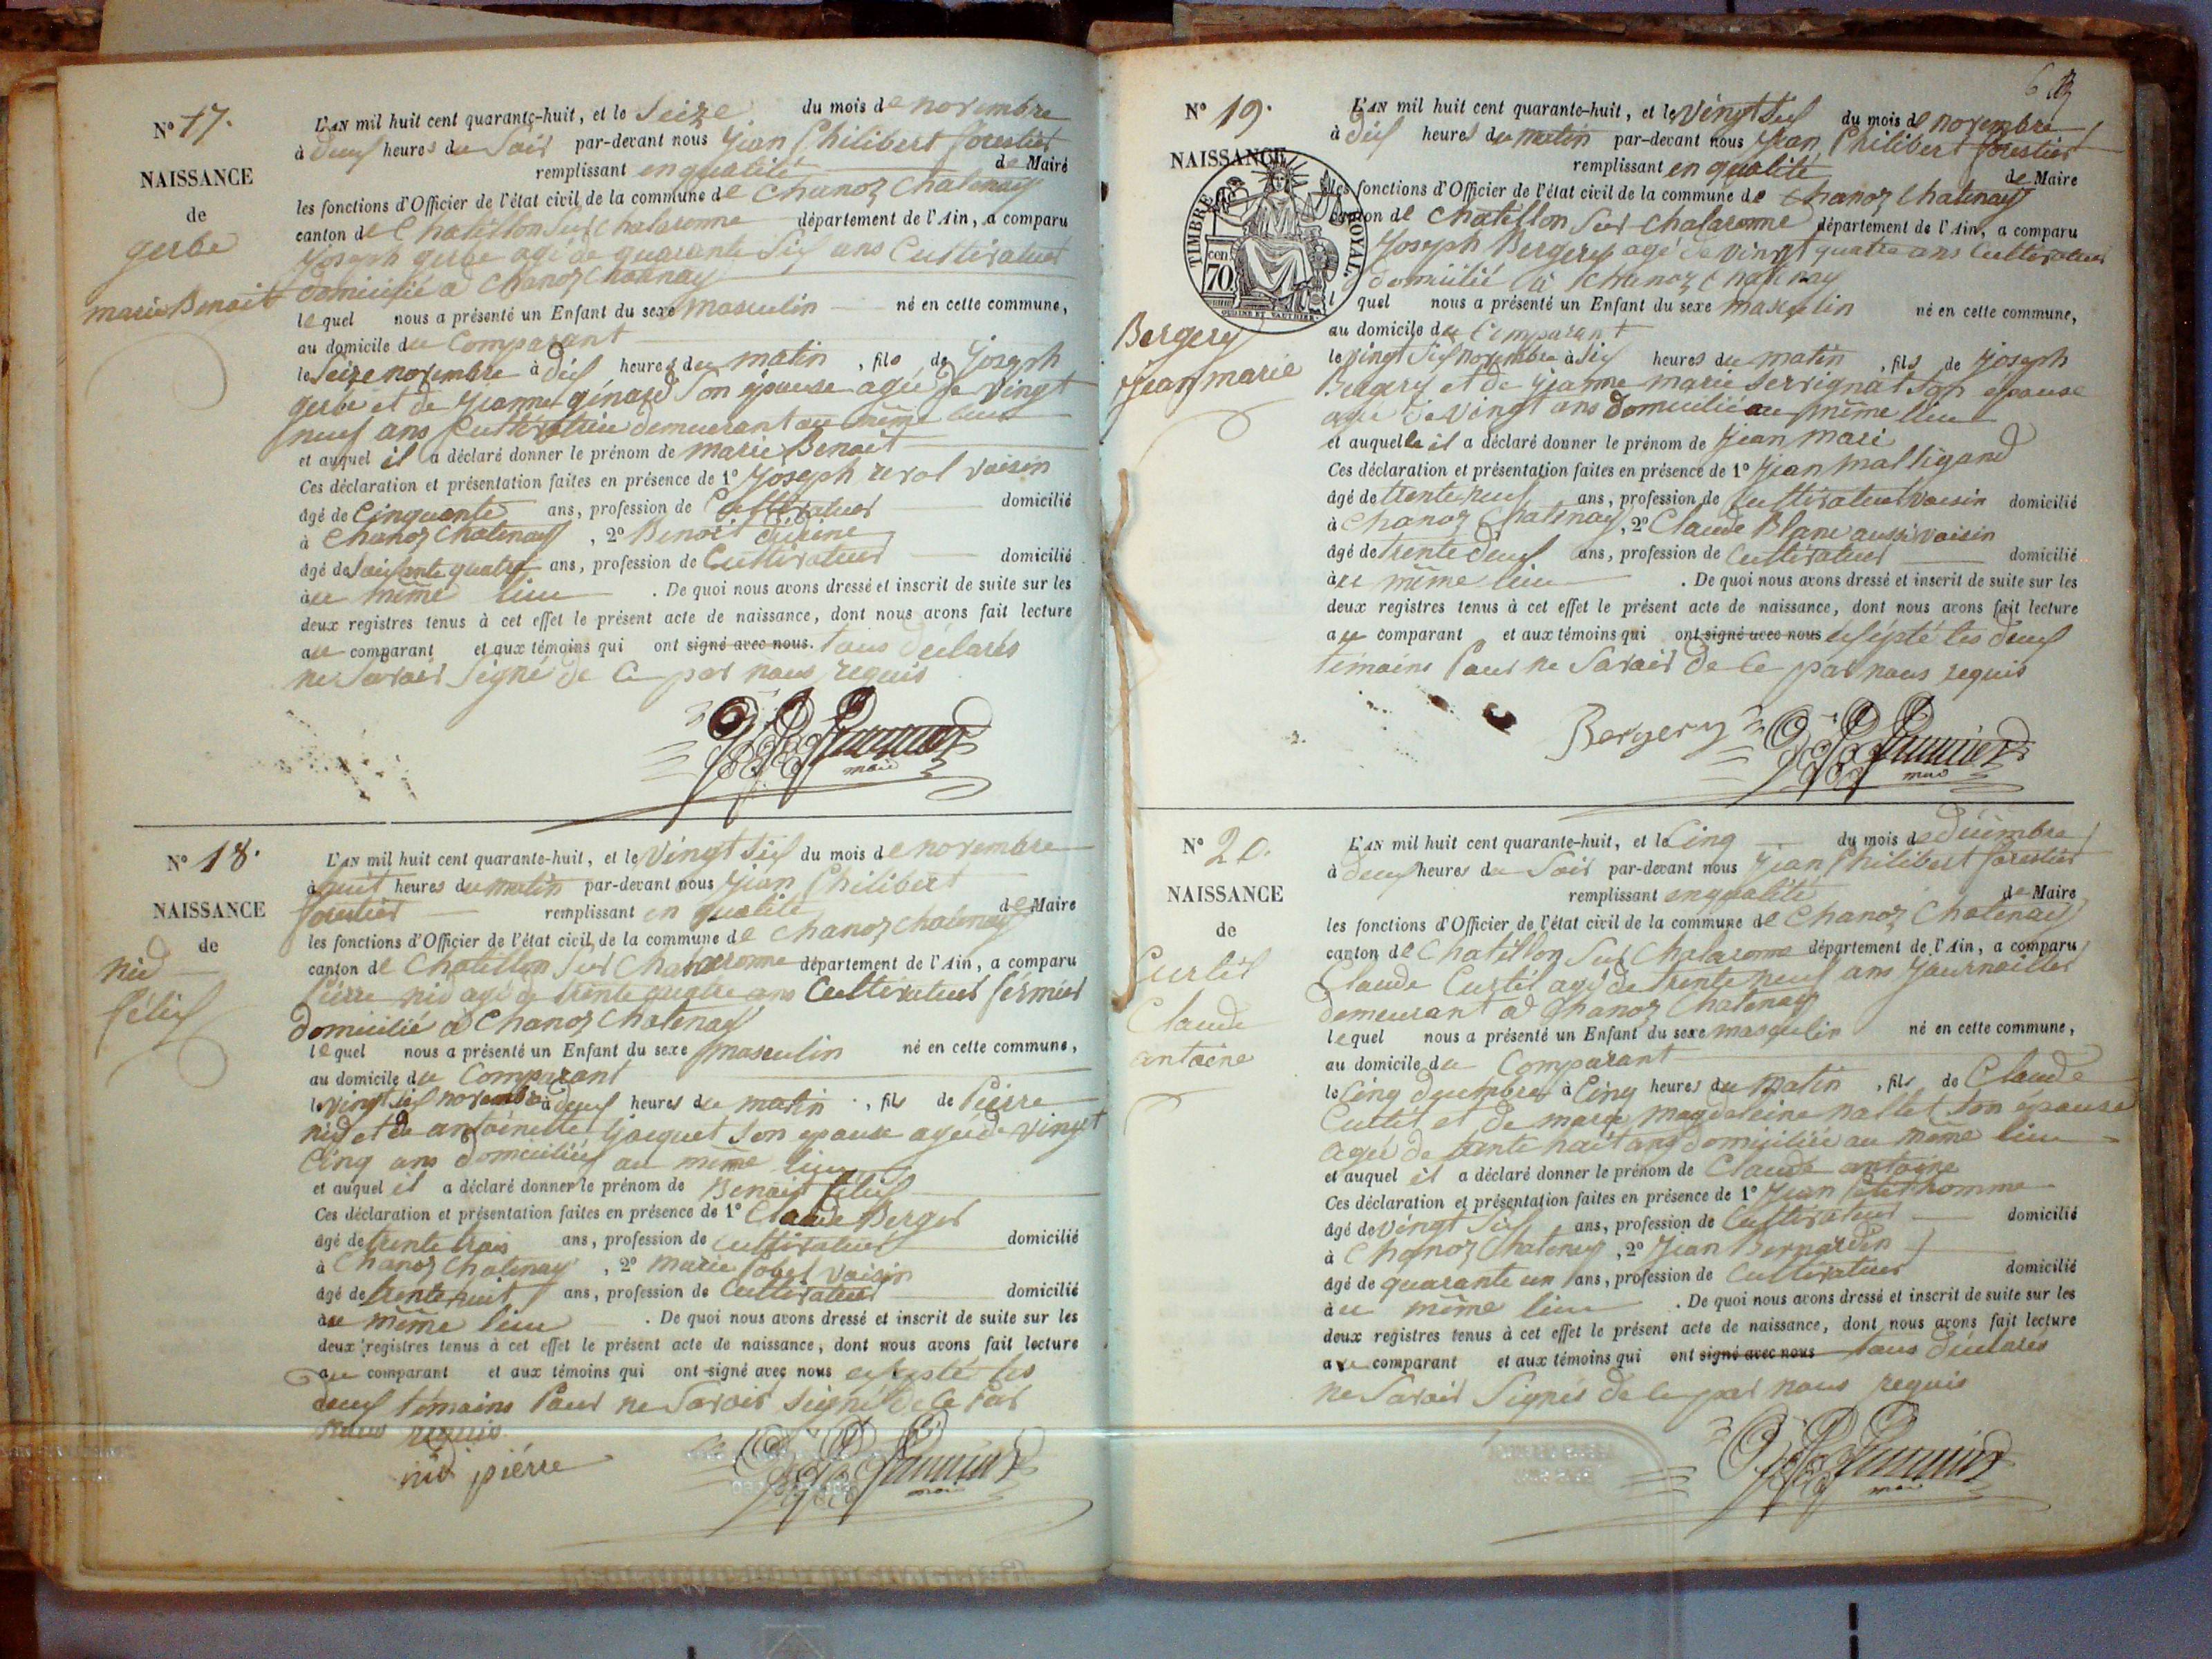 N° 17.
NAISSANCE
de
gerbe
marie Benoit
L'AN mil huit cent quarante-huit, et le Seize du mois de novembre
à deux heures du Soir par-devant nous Jean Philibert forestier
remplissant en qualité de Maire
les fonctions d'Officier de l'état civil de la commune de Chanoz Chatenay
canton de Chatillon Sur Chalaronne département de l'Ain, a comparu
Joseph gerbe agé de quarante Six ans Cultivateur
domicilié a Chanoz Chatenay
lequel nous a présenté un Enfant du sexe masculin né en cette commune,
au domicile du Comparant
le Seize novembre à dix heures du matin, fils de Joseph
gerbe et de Jeanne génard Son épouse agée de vingt
neuf ans demeurant au même lieu
et auquel il a déclaré donner le prénom de marie Benoit
Ces déclaration et présentation faites en présence de 1° Joseph revol voisin
âgé de Cinquante ans, profession de Cultivateur domicilié
à Chanoz Chatenay, 2° Benoit
âgé de Soixante quatre ans, profession de Cultivateur domicilié
au même lieu. De quoi nous avons dressé et inscrit de suite sur les
deux registres tenus à cet effet le présent acte de naissance, dont nous avons fait lecture
au comparant et aux témoins qui ont signé avec nous. tous déclarés
ne Savoir Signé de Ce par nous requis
maire
N° 18.
NAISSANCE
de
nid
félix
L'AN mil huit cent quarante-huit, et le Vingt Six du mois de novembre
à huit heures du matin par-devant nous Jean Philibert
forestier remplissant en qualité de Maire
les fonctions d'Officier de l'état civil de la commune de Chanoz Chatenay
canton de Chatillon Sur Chalaronne département de l'Ain, a comparu
Pierre nid agé de trente quatre ans Cultivateur fermier
domicilié à Chanoz Chatenay
lequel nous a présenté un Enfant du sexe masculin né en cette commune,
au domicile du Comparant
le vingt Six novembre à deux heures du matin, fils de Pierre
nid et de antoinette Jacquet Son epouse agée de vingt
Cinq ans domiciliés au même lieu
et auquel il a déclaré donner le prénom de Benoit félix
Ces déclaration et présentation faites en présence de 1° Claude Berger
âgé de trente trois ans, profession de Cultivateur domicilié
à Chanoz Chatenay, 2° marie voisin
âgé de trente huit ans, profession de Cultivateur domicilié
au même lieu. De quoi nous avons dressé et inscrit de suite sur les
deux registres tenus à cet effet le présent acte de naissance, dont nous avons fait lecture
au comparant et aux témoins qui ont signé avec nous exépté les
deux témoins Pour ne Savoir Signé de Ce Par
nous requis
nid piérre
N° 19.
NAISSANCE
TIMBRE ROYAL.
cen
70
Bergery
Jean marie
L'AN mil huit cent quarante-huit, et le Vingt Six du mois de novembre
à dix heures du matin par-devant nous Jean Philibert forestier
remplissant en qualité de Maire
les fonctions d'Officier de l'état civil de la commune de Chanoz Chatenay
canton de Chatillon Sur Chalaronne département de l'Ain, a comparu
Joseph Bergery agé de vingt quatre ans Cultivateur
domicilié à Chanoz Chatenay
lequel nous a présenté un Enfant du sexe masculin né en cette commune,
au domicile du Comparant
le vingt Six novembre à Six heures du matin, fils de Joseph
Bergery et de Jeanne marie Servignat Son epouse
agée de vingt ans domiciliée au même lieu
et auquel il a déclaré donner le prénom de Jean mari
Ces déclaration et présentation faites en présence de 1° Jean malligand
âgé de trente neuf ans, profession de Cultivateur voisin domicilié
à Chanoz Chatenay, 2° Claude Blanc aussi voisin
âgé de trente deux ans, profession de Cultivateur domicilié
au même lieu. De quoi nous avons dressé et inscrit de suite sur les
deux registres tenus à cet effet le présent acte de naissance, dont nous avons fait lecture
au comparant et aux témoins qui ont signé avec nous exépté les deux
témoins Pour ne Savoir de Ce par nous requis
Bergery
N° 20.
NAISSANCE
de
Curtil
Claude
antoine
L'AN mil huit cent quarante-huit, et le Cinq du mois de décembre
à deux heures du Soir par-devant nous Jean Philibert forestier
remplissant en qualité de Maire
les fonctions d'Officier de l'état civil de la commune de Chanoz Chatenay
canton de Chatillon Sur Chalaronne département de l'Ain, a comparu
Claude Curtil agé de trente neuf ans Journailler
demeurant à Chanoz Chatenay
lequel nous a présenté un Enfant du sexe masculin né en cette commune,
au domicile du Comparant
le Cinq décembre à Cinq heures du matin, fils de Claude
Curtil et de marie magdeleine nallet Son épouse
agée de trente huit ans domiciliée au même lieu
et auquel il a déclaré donner le prénom de Claude antoine
Ces déclaration et présentation faites en présence de 1° Jean Petithomme
âgé de vingt Six ans, profession de Cultivateur domicilié
à Chanoz Chatenay, 2° Jean Bernardin
âgé de quarante un ans, profession de Cultivateur domicilié
au même lieu. De quoi nous avons dressé et inscrit de suite sur les
deux registres tenus à cet effet le présent acte de naissance, dont nous avons fait lecture
au comparant et aux témoins qui ont signé avec nous tous déclarés
ne Savoir Signés de Ce par nous requis